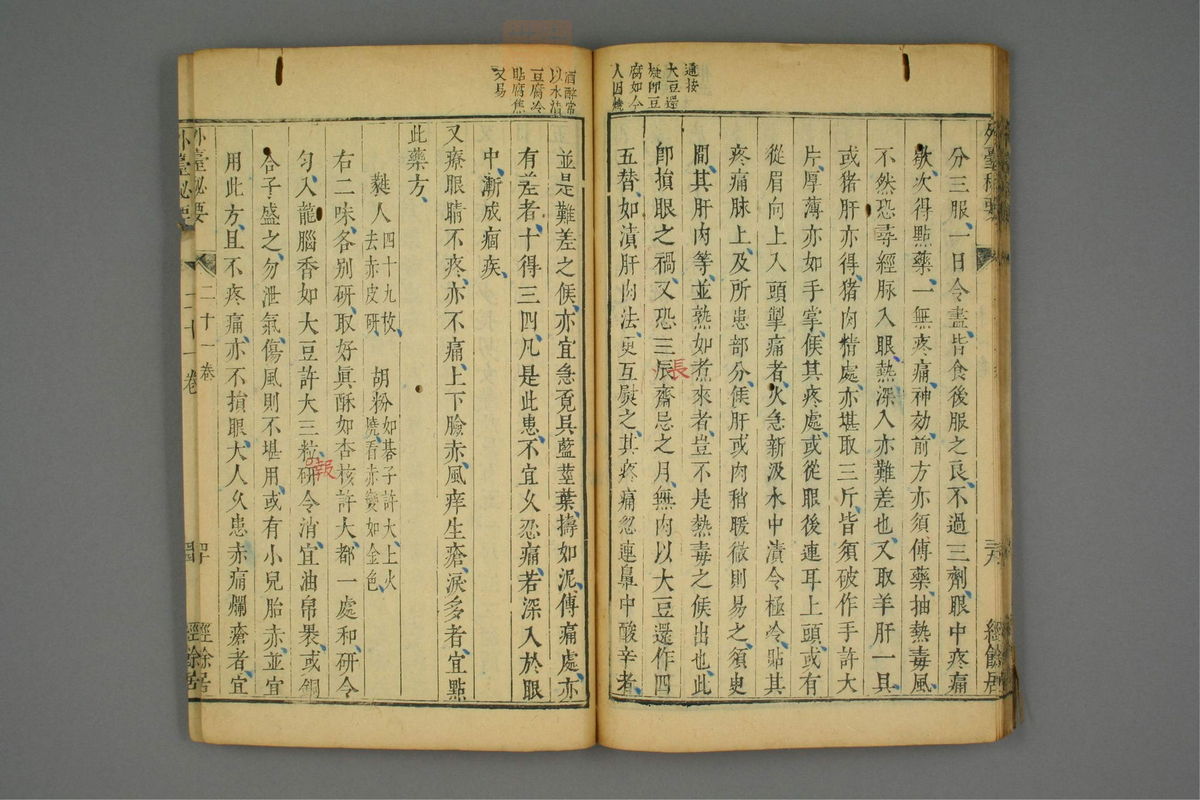 遹按
大豆還
疑卽豆
腐如今
人因燒
酒醉常
以水漬
豆腐冷
貼腐焦
又易
外臺秘要
經餘居
分三服、一日令盡、皆食後服之、良、不過三劑、眼中疼痛
歇、次得點藥、一無疼痛、神効、前方亦須傅藥、抽熱毒風、
不然恐尋經脉入眼、熱深入亦難差也、又取羊肝一具
或猪肝亦得、猪肉精處、亦堪取三斤、皆須破作手許大
片、厚薄亦如手掌、候其疼處、或從眼後連耳上頭、或有
從眉向上入頭掣痛者、火急新汲水中漬令極冷、貼其
疼痛脉上、及所患部分、候肝或肉稍暖徹則易之、須臾
間、其肝肉等、並熟如煮來者、豈不是熱毒之候出也、此
卽損眼之禍、又恐三辰齋忌之月、無肉以大豆還作四
張
五替、如漬肝肉法、更互熨之、其疼痛忽連鼻中酸辛者、
並是難差之候、亦宜急覔具藍莖葉、擣如泥、傅痛處、亦
有差者、十得三四、凡是此患、不宜久忍痛、若深入於眼
中、漸成痼疾、
又療眼睛不疼、亦不痛、上下瞼赤、風痒生瘡、淚多者、宜點
此藥方、
蕤人 四十九枚、去赤皮研 胡粉 如碁子許大、上火燒看赤變如金色、
右二味、各別研、取好眞酥如杏核許大、都一處和、研令
匀、入龍腦香如大豆許大三粒、研令消、宜油帛褁、或銅
報
合子盛之、勿泄氣、傷風則不堪用、或有小兒胎赤、並宜
用此方、且不疼痛、亦不損眼、大人久患赤痛爛瘡者、宜
外臺秘要
二十一卷
經餘居